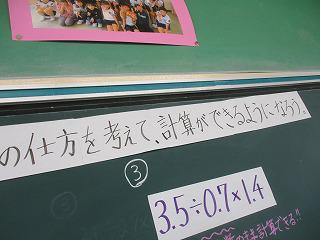 の仕方を考えて、計算ができるようになろう。
③
3.5÷0.7×1.4
計算できる!!